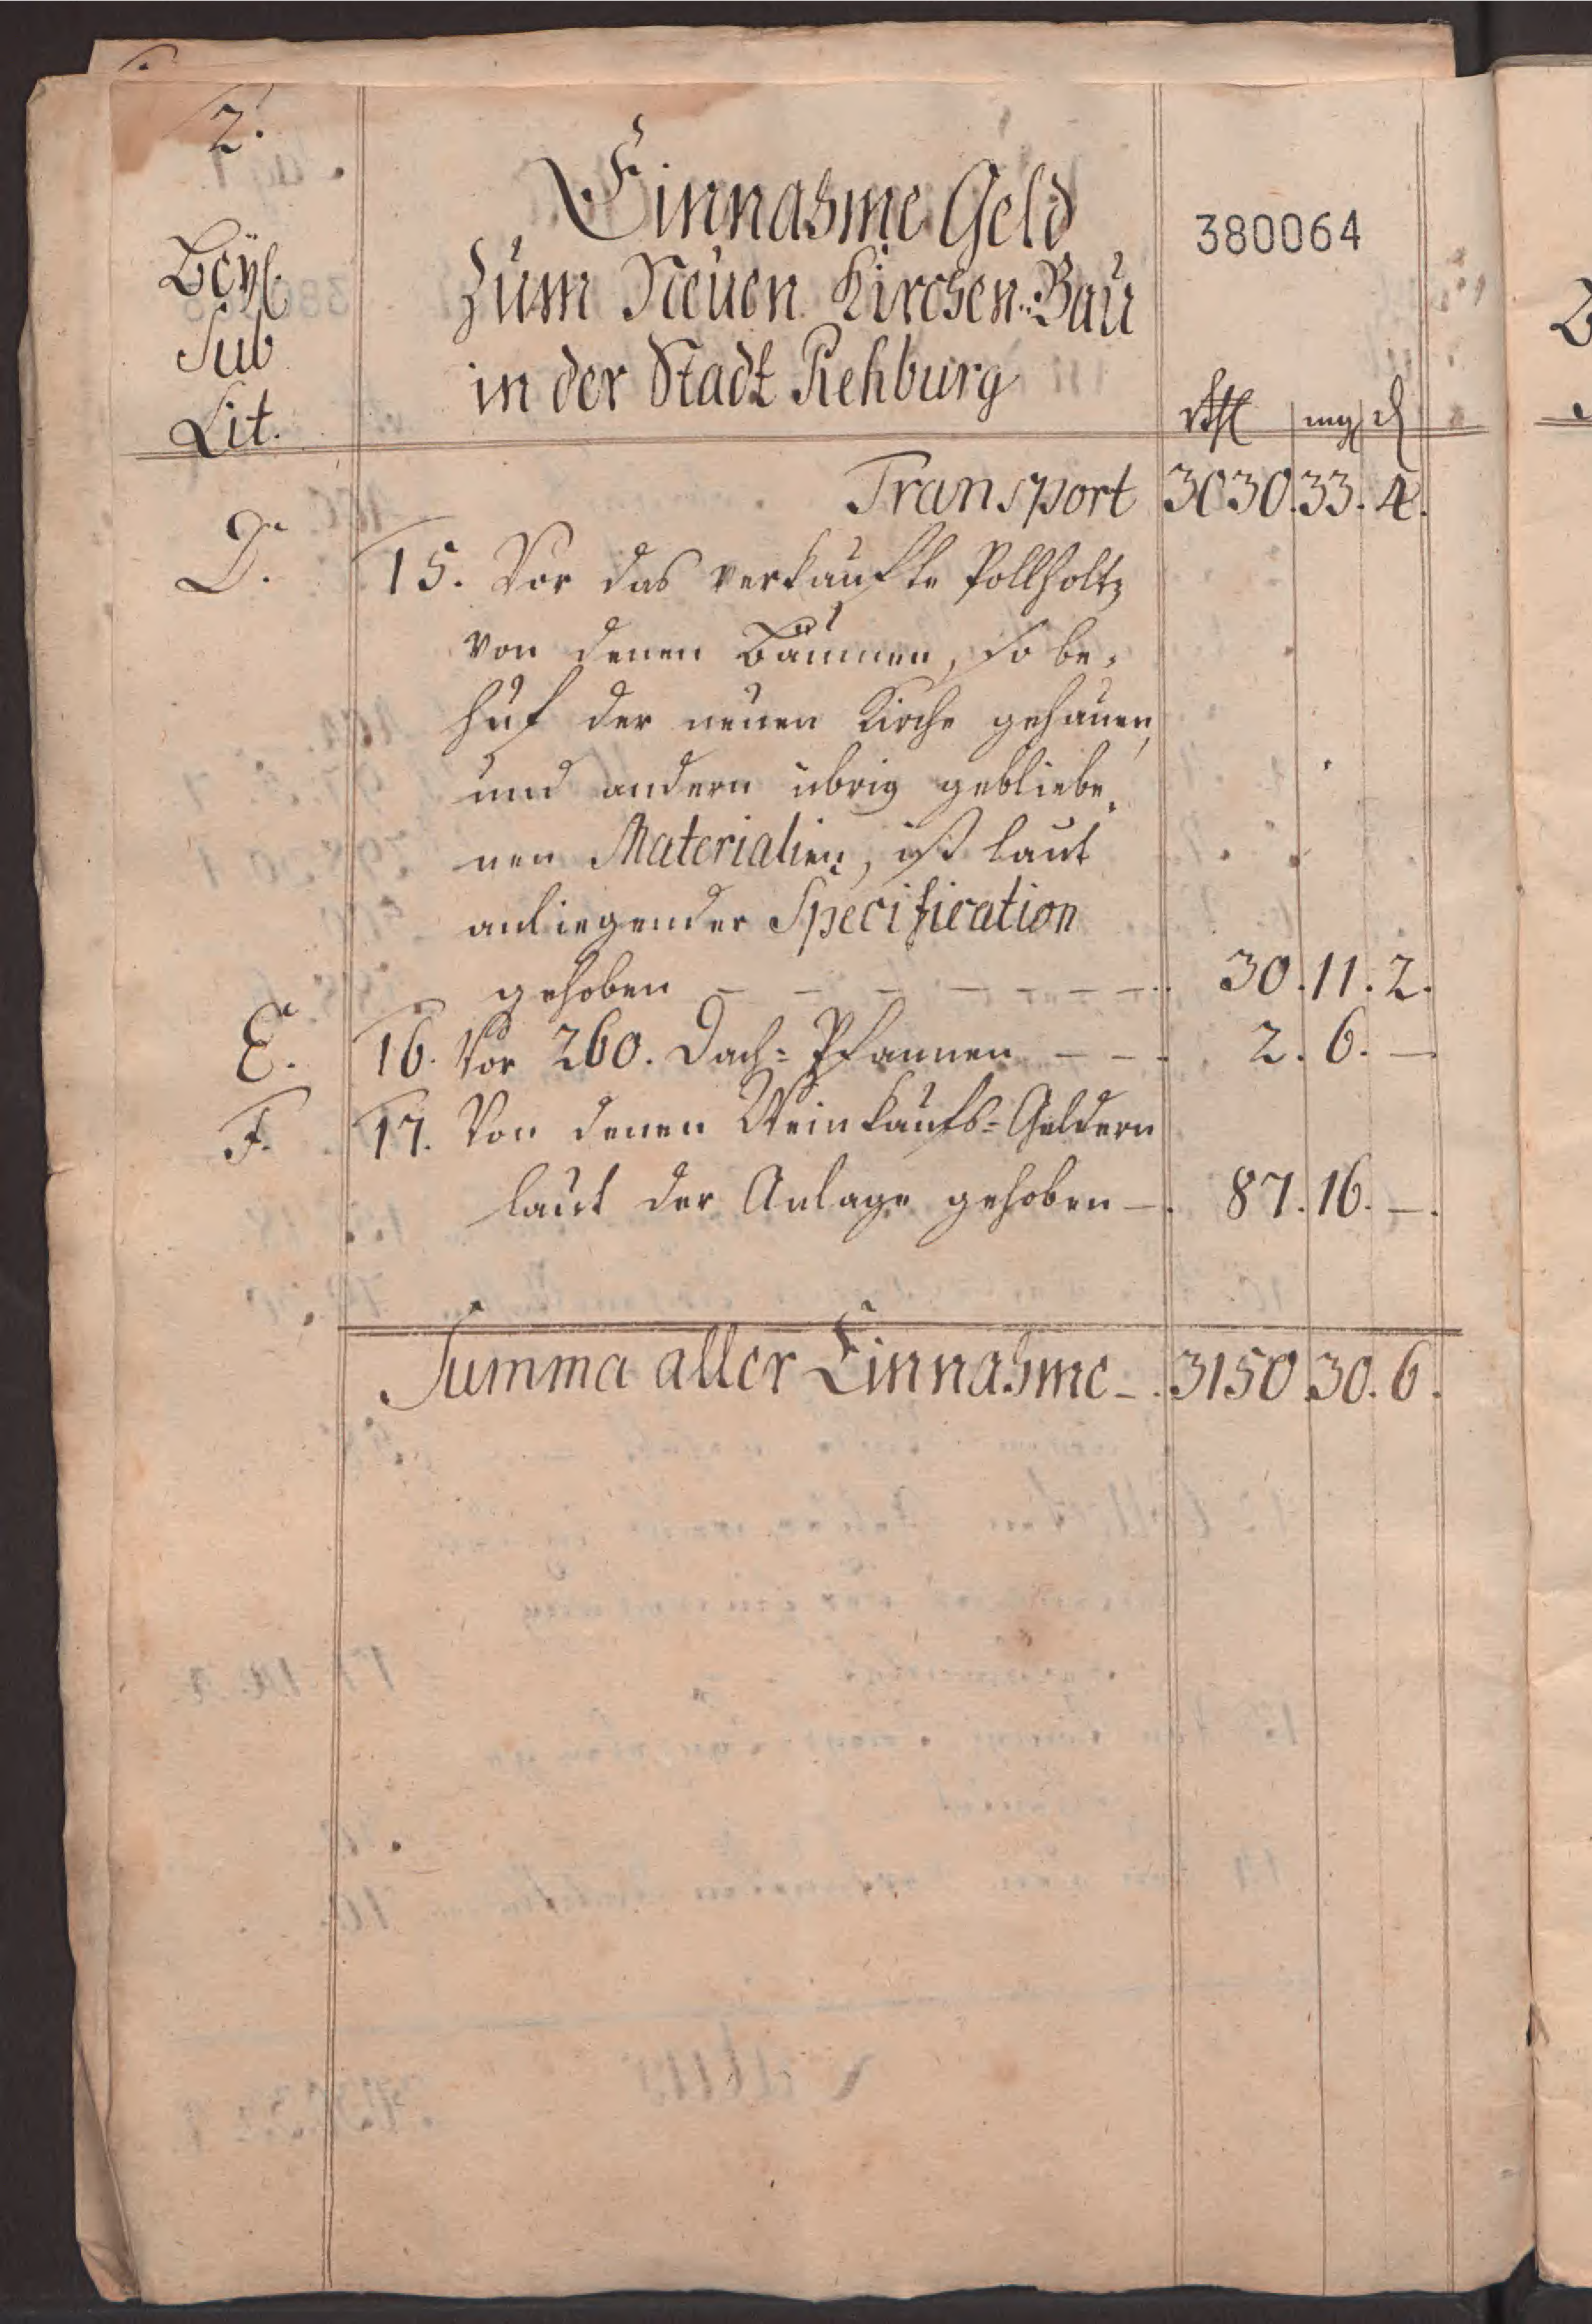 2.
Einnahme Geld
zum Neuen Kirchen-Bau
in der Stadt Rehburg
380064
Beyl.
Sub
Lit.
rthl mgl d
Transport 3030. 33. 4.
D. 15. Vor das verkaufte Pollholtz
von denen Bäumen, so be-
huf der neuen Kirche gehauen,
und andern übrig gebliebe-
nen Materialien, ist laut
anliegender Specification
gehoben - - - - - - - 30. 11. 2.
E. 16. Vor 260. Dach-Pfannen - - 2. 6. -
F. 17. Von denen Weinkaufs-Geldern
laut der Anlage gehoben - 87. 16. -
Summa aller Einnahme - 3150. 30. 6.